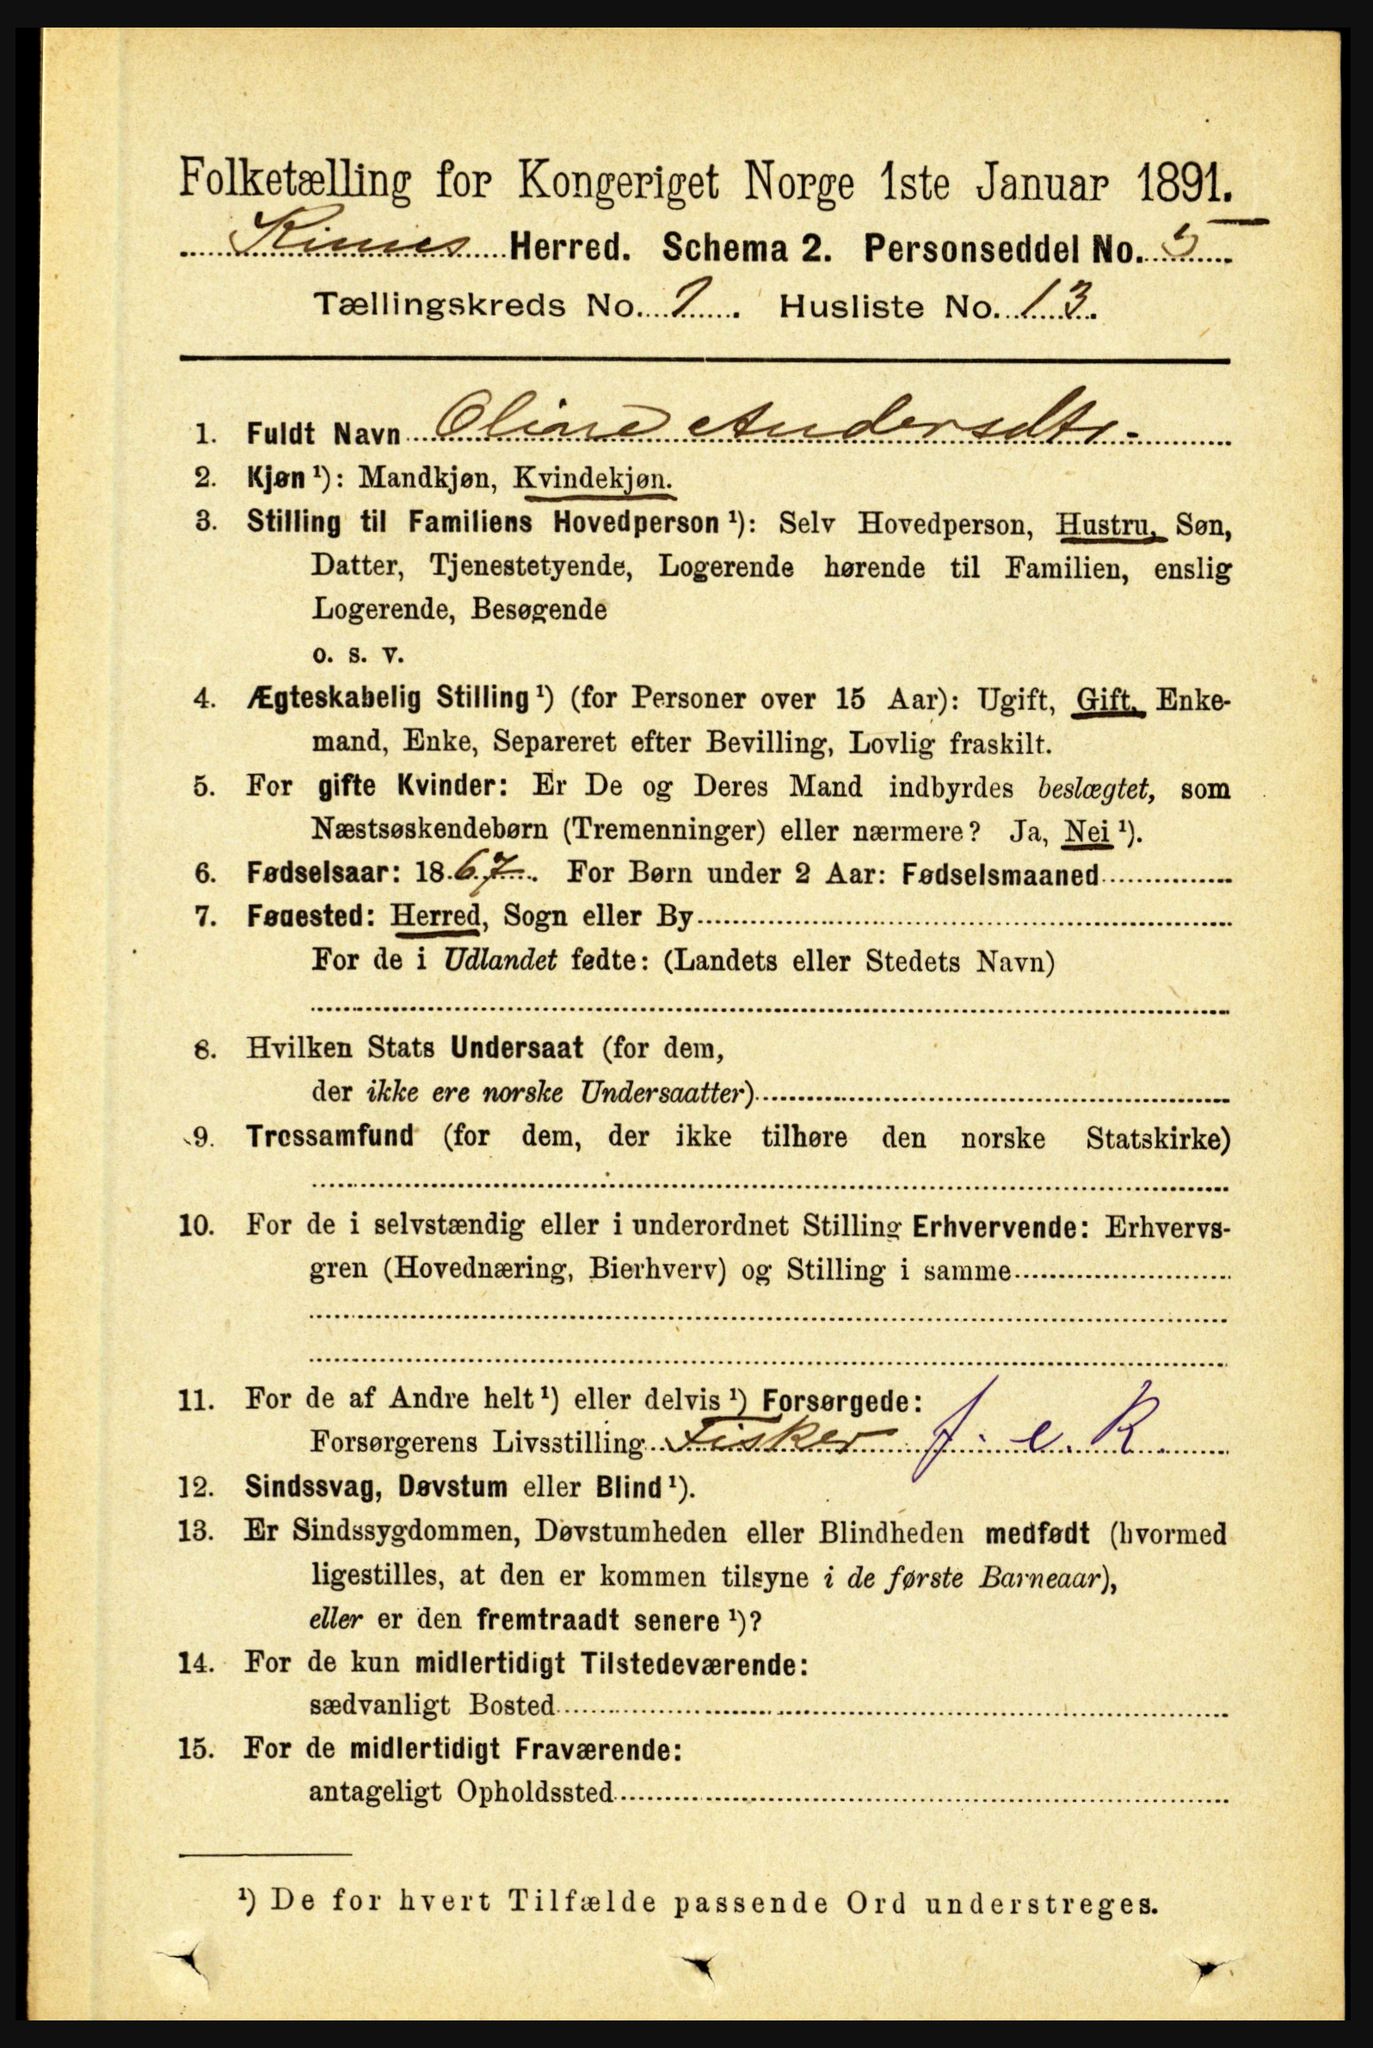 Folketælling for Kongeriget Norge 1ste Januar 1891.
Kinns Herred. Schema 2. Personseddel No. 5
Tællingskreds No. 7. Husliste No. 13.
1. Fuldt Navn Oline Andersdtr.
2. Kjøn ¹): Mandkjøn, Kvindekjøn.
3. Stilling til Familiens Hovedperson ¹): Selv Hovedperson, Hustru, Søn,
Datter, Tjenestetyende, Logerende hørende til Familien, enslig
Logerende, Besøgende
o. s. v.
4. Ægteskabelig Stilling ¹) (for Personer over 15 Aar): Ugift, Gift, Enke-
mand, Enke, Separeret efter Bevilling, Lovlig fraskilt.
5. For gifte Kvinder: Er De og Deres Mand indbyrdes beslægtet, som
Næstsøskendebørn (Tremenninger) eller nærmere? Ja, Nei ¹).
6. Fødselsaar: 1867. For Børn under 2 Aar: Fødselsmaaned
7. Fødested: Herred, Sogn eller By
For de i Udlandet fødte: (Landets eller Stedets Navn)
8. Hvilken Stats Undersaat (for dem,
der ikke ere norske Undersaatter)
9. Trossamfund (for dem, der ikke tilhøre den norske Statskirke)
10. For de i selvstændig eller i underordnet Stilling Erhvervende: Erhvervs-
gren (Hovednæring, Bierhverv) og Stilling i samme
11. For de af Andre helt ¹) eller delvis ¹) Forsørgede:
Forsørgerens Livsstilling Fisker f. e. R.
12. Sindssvag, Døvstum eller Blind ¹).
13. Er Sindssygdommen, Døvstumheden eller Blindheden medfødt (hvormed
ligestilles, at den er kommen tilsyne i de første Barneaar),
eller er den fremtraadt senere ¹)?
14. For de kun midlertidigt Tilstedeværende:
sædvanligt Bosted
15. For de midlertidigt Fraværende:
antageligt Opholdssted
¹) De for hvert Tilfælde passende Ord understreges.